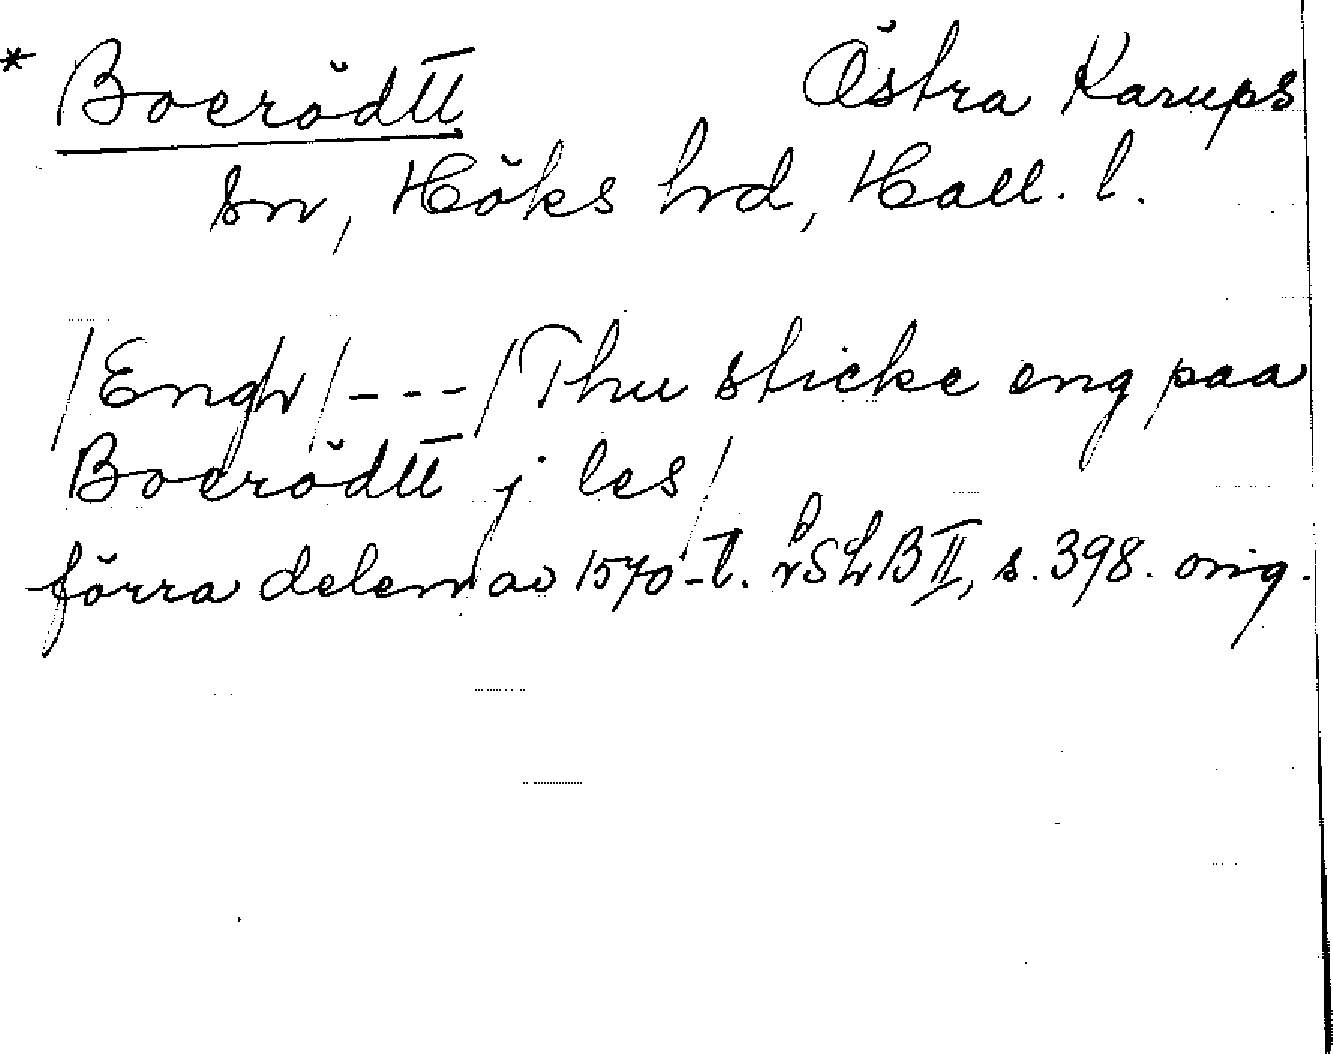 * Boerödtt Östra Karups
sn, Höks hrd, Hall. l.
/Engr/---/Thu sticke eng paa
Boerödtt j les/
förra delen av 1570-t. LSLB II, s. 398. orig.